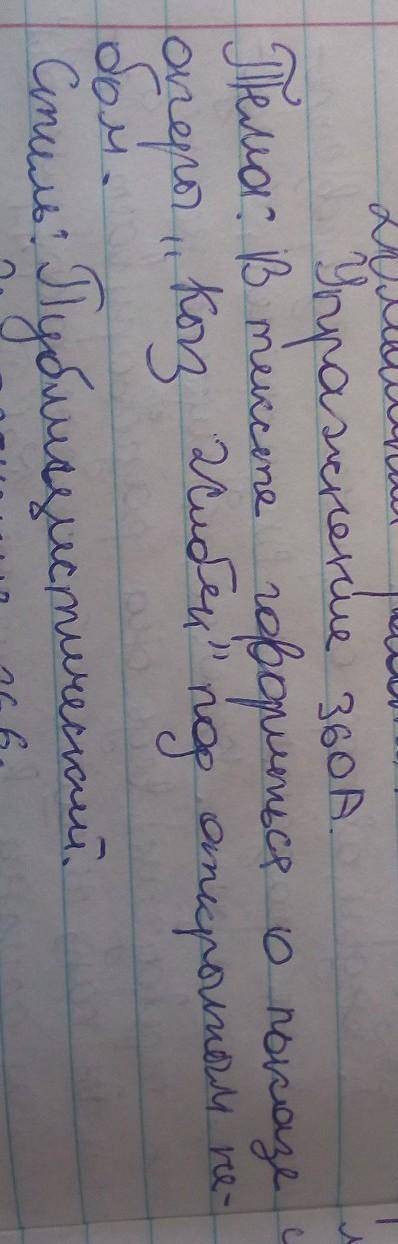 Домашняя работа.
Упражнение 360А.
Тема: В тексте говориться о показе
оперы „Кыз Жибек" под открытым не-
бом.
Стиль: Публицистический.